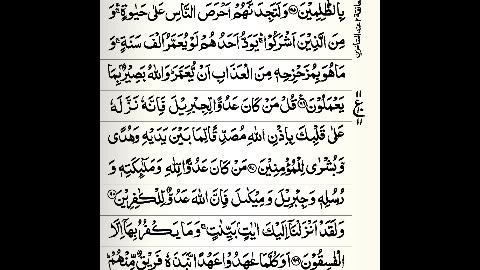 بِالظّٰلِمِيْنَ ۝۹۵ وَلَتَجِدَنَّهُمْ اَحْرَصَ النَّاسِ عَلٰى حَيٰوةٍ ۛۚ وَ
مِنَ الَّذِيْنَ اَشْرَكُوْا ۛۚ يَوَدُّ اَحَدُهُمْ لَوْ يُعَمَّرُ اَلْفَ سَنَةٍ ۚ وَ
مَا هُوَ بِمُزَحْزِحِهٖ مِنَ الْعَذَابِ اَنْ يُّعَمَّرَ ؕ وَاللّٰهُ بَصِيْرٌۢ بِمَا
يَعْمَلُوْنَ ۝۹۶ قُلْ مَنْ كَانَ عَدُوًّا لِّجِبْرِيْلَ فَاِنَّهٗ نَزَّلَهٗ
ع
عَلٰى قَلْبِكَ بِاِذْنِ اللّٰهِ مُصَدِّقًا لِّمَا بَيْنَ يَدَيْهِ وَهُدًى
وَّبُشْرٰى لِلْمُؤْمِنِيْنَ ۝۹۷ مَنْ كَانَ عَدُوًّا لِّلّٰهِ وَمَلٰٓئِكَتِهٖ وَ
رُسُلِهٖ وَجِبْرِيْلَ وَمِيْكٰىلَ فَاِنَّ اللّٰهَ عَدُوٌّ لِّلْكٰفِرِيْنَ ۝۹۸
وَلَقَدْ اَنْزَلْنَاۤ اِلَيْكَ اٰيٰتٍۭ بَيِّنٰتٍ ۚ وَمَا يَكْفُرُ بِهَاۤ اِلَّا
الْفٰسِقُوْنَ ۝۹۹ اَوَكُلَّمَا عٰهَدُوْا عَهْدًا نَّبَذَهٗ فَرِيْقٌ مِّنْهُمْ ؕ